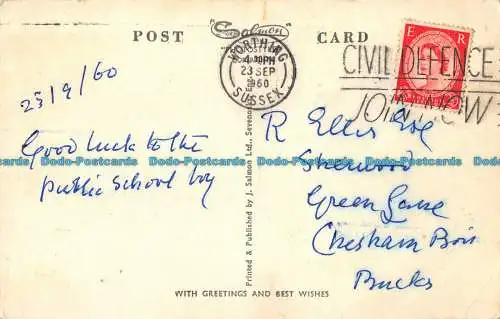 POST CARD
Salmon
WORTHING
23 SEP
1960
SUSSEX
E R
CIVIL DEFENCE
JOIN NOW
23/9/60
Good luck to the
public School boy
R Ellis Esq
Sherwood
Green Lane
Chesham Bois
Bucks
Printed & Published by J. Salmon Ltd., Sevenoaks
Dodo-Postcards Dodo-Postcards Dodo-Postcards Dodo-Postcards Dodo-Postcards Dodo-Postcards
WITH GREETINGS AND BEST WISHES